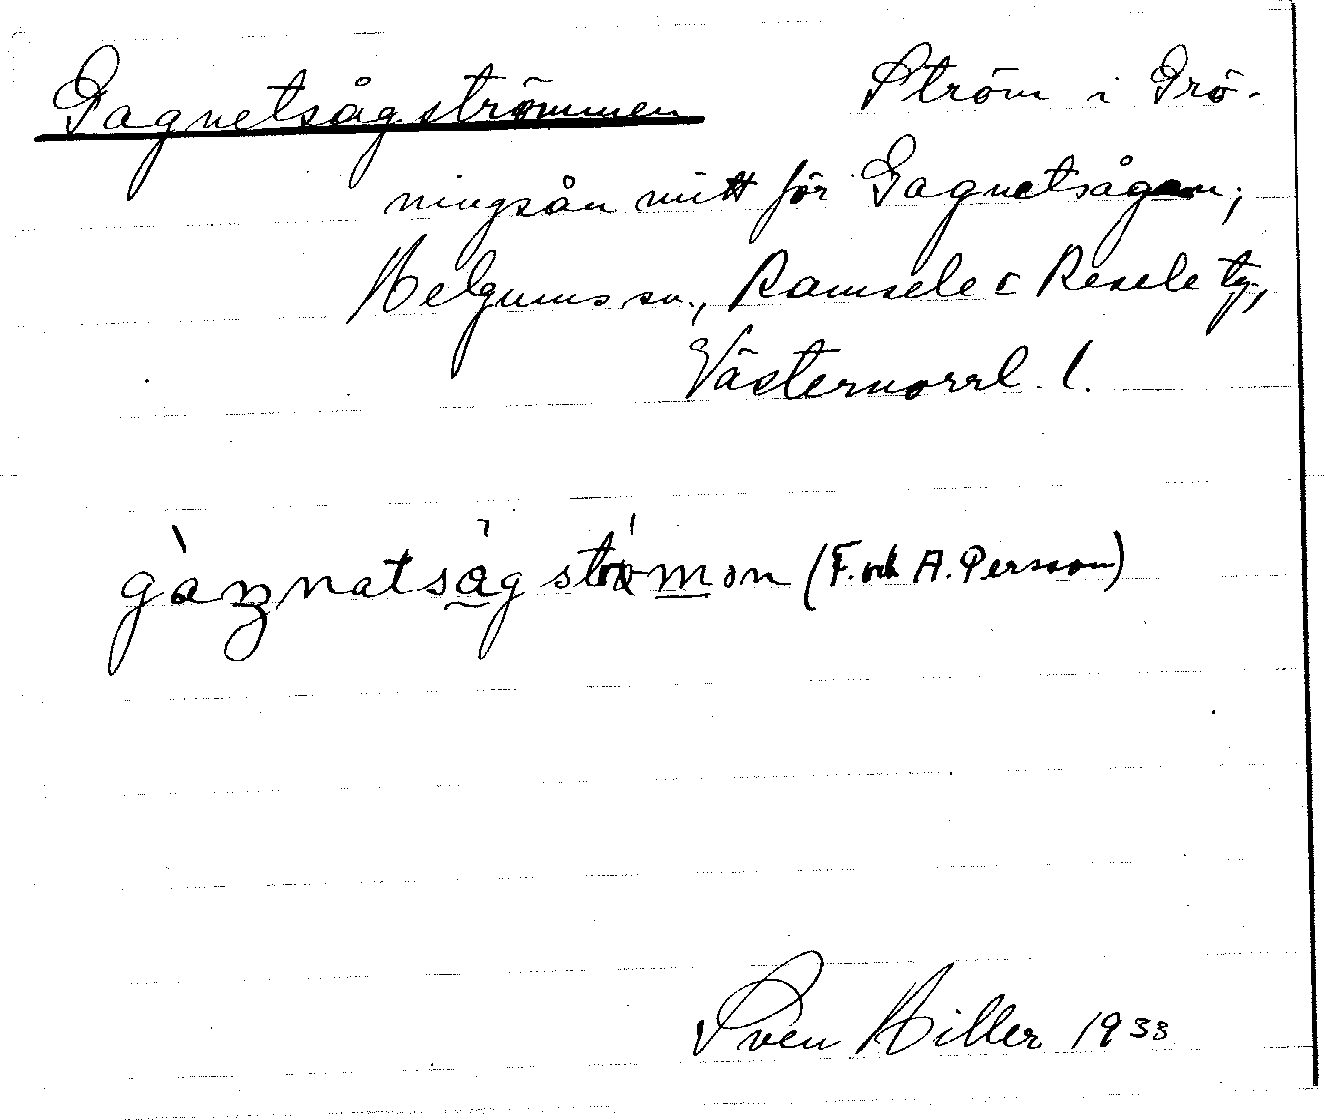 Gagnetsågströmmen Ström i Grö-
ningsån mitt för Gagnetsågen;
Helgums sn., Ramsele o Resele tg,
Västernorrl. l.
gàŋnatsågstrǿmən (F. och A. Persson)
Sven Hiller 1933